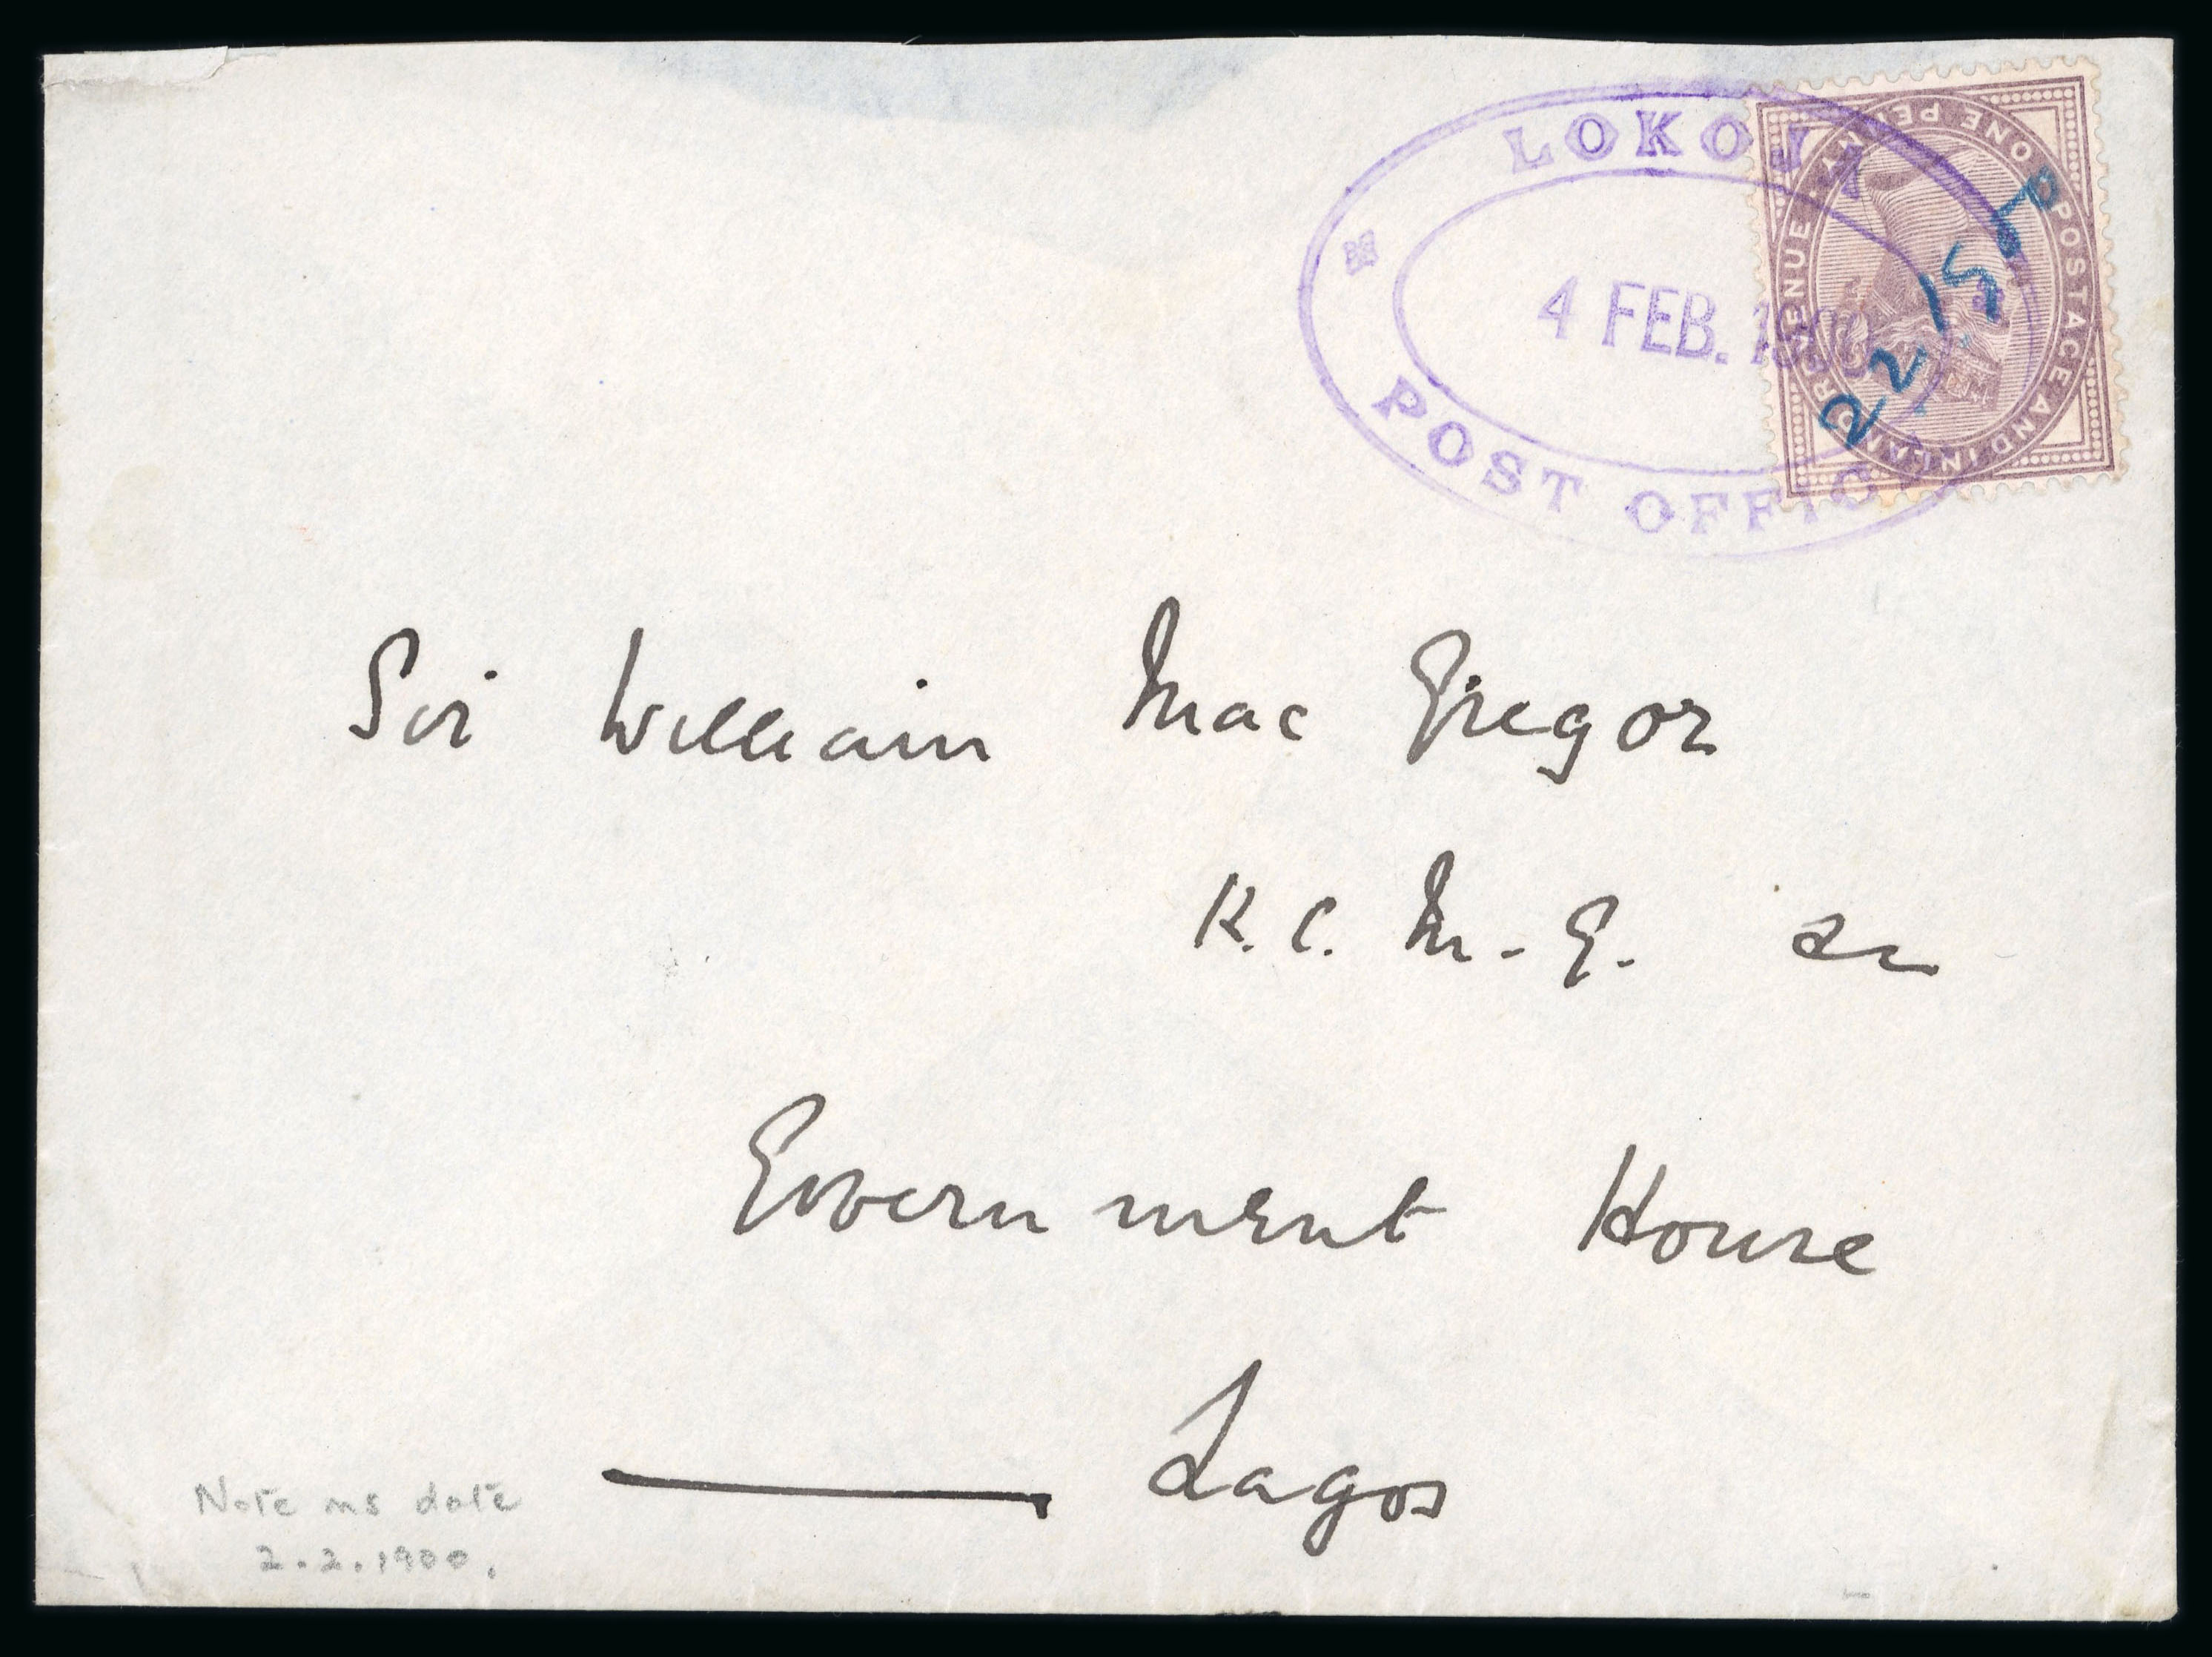 LOKOJA
4 FEB. 1900
POST OFFICE
POSTAGE AND INLAND REVENUE
ONE PENNY
Sir William Mac Gregor
K. C. M. G. &c
Government House
Lagos
Note ms date
2.2.1900.